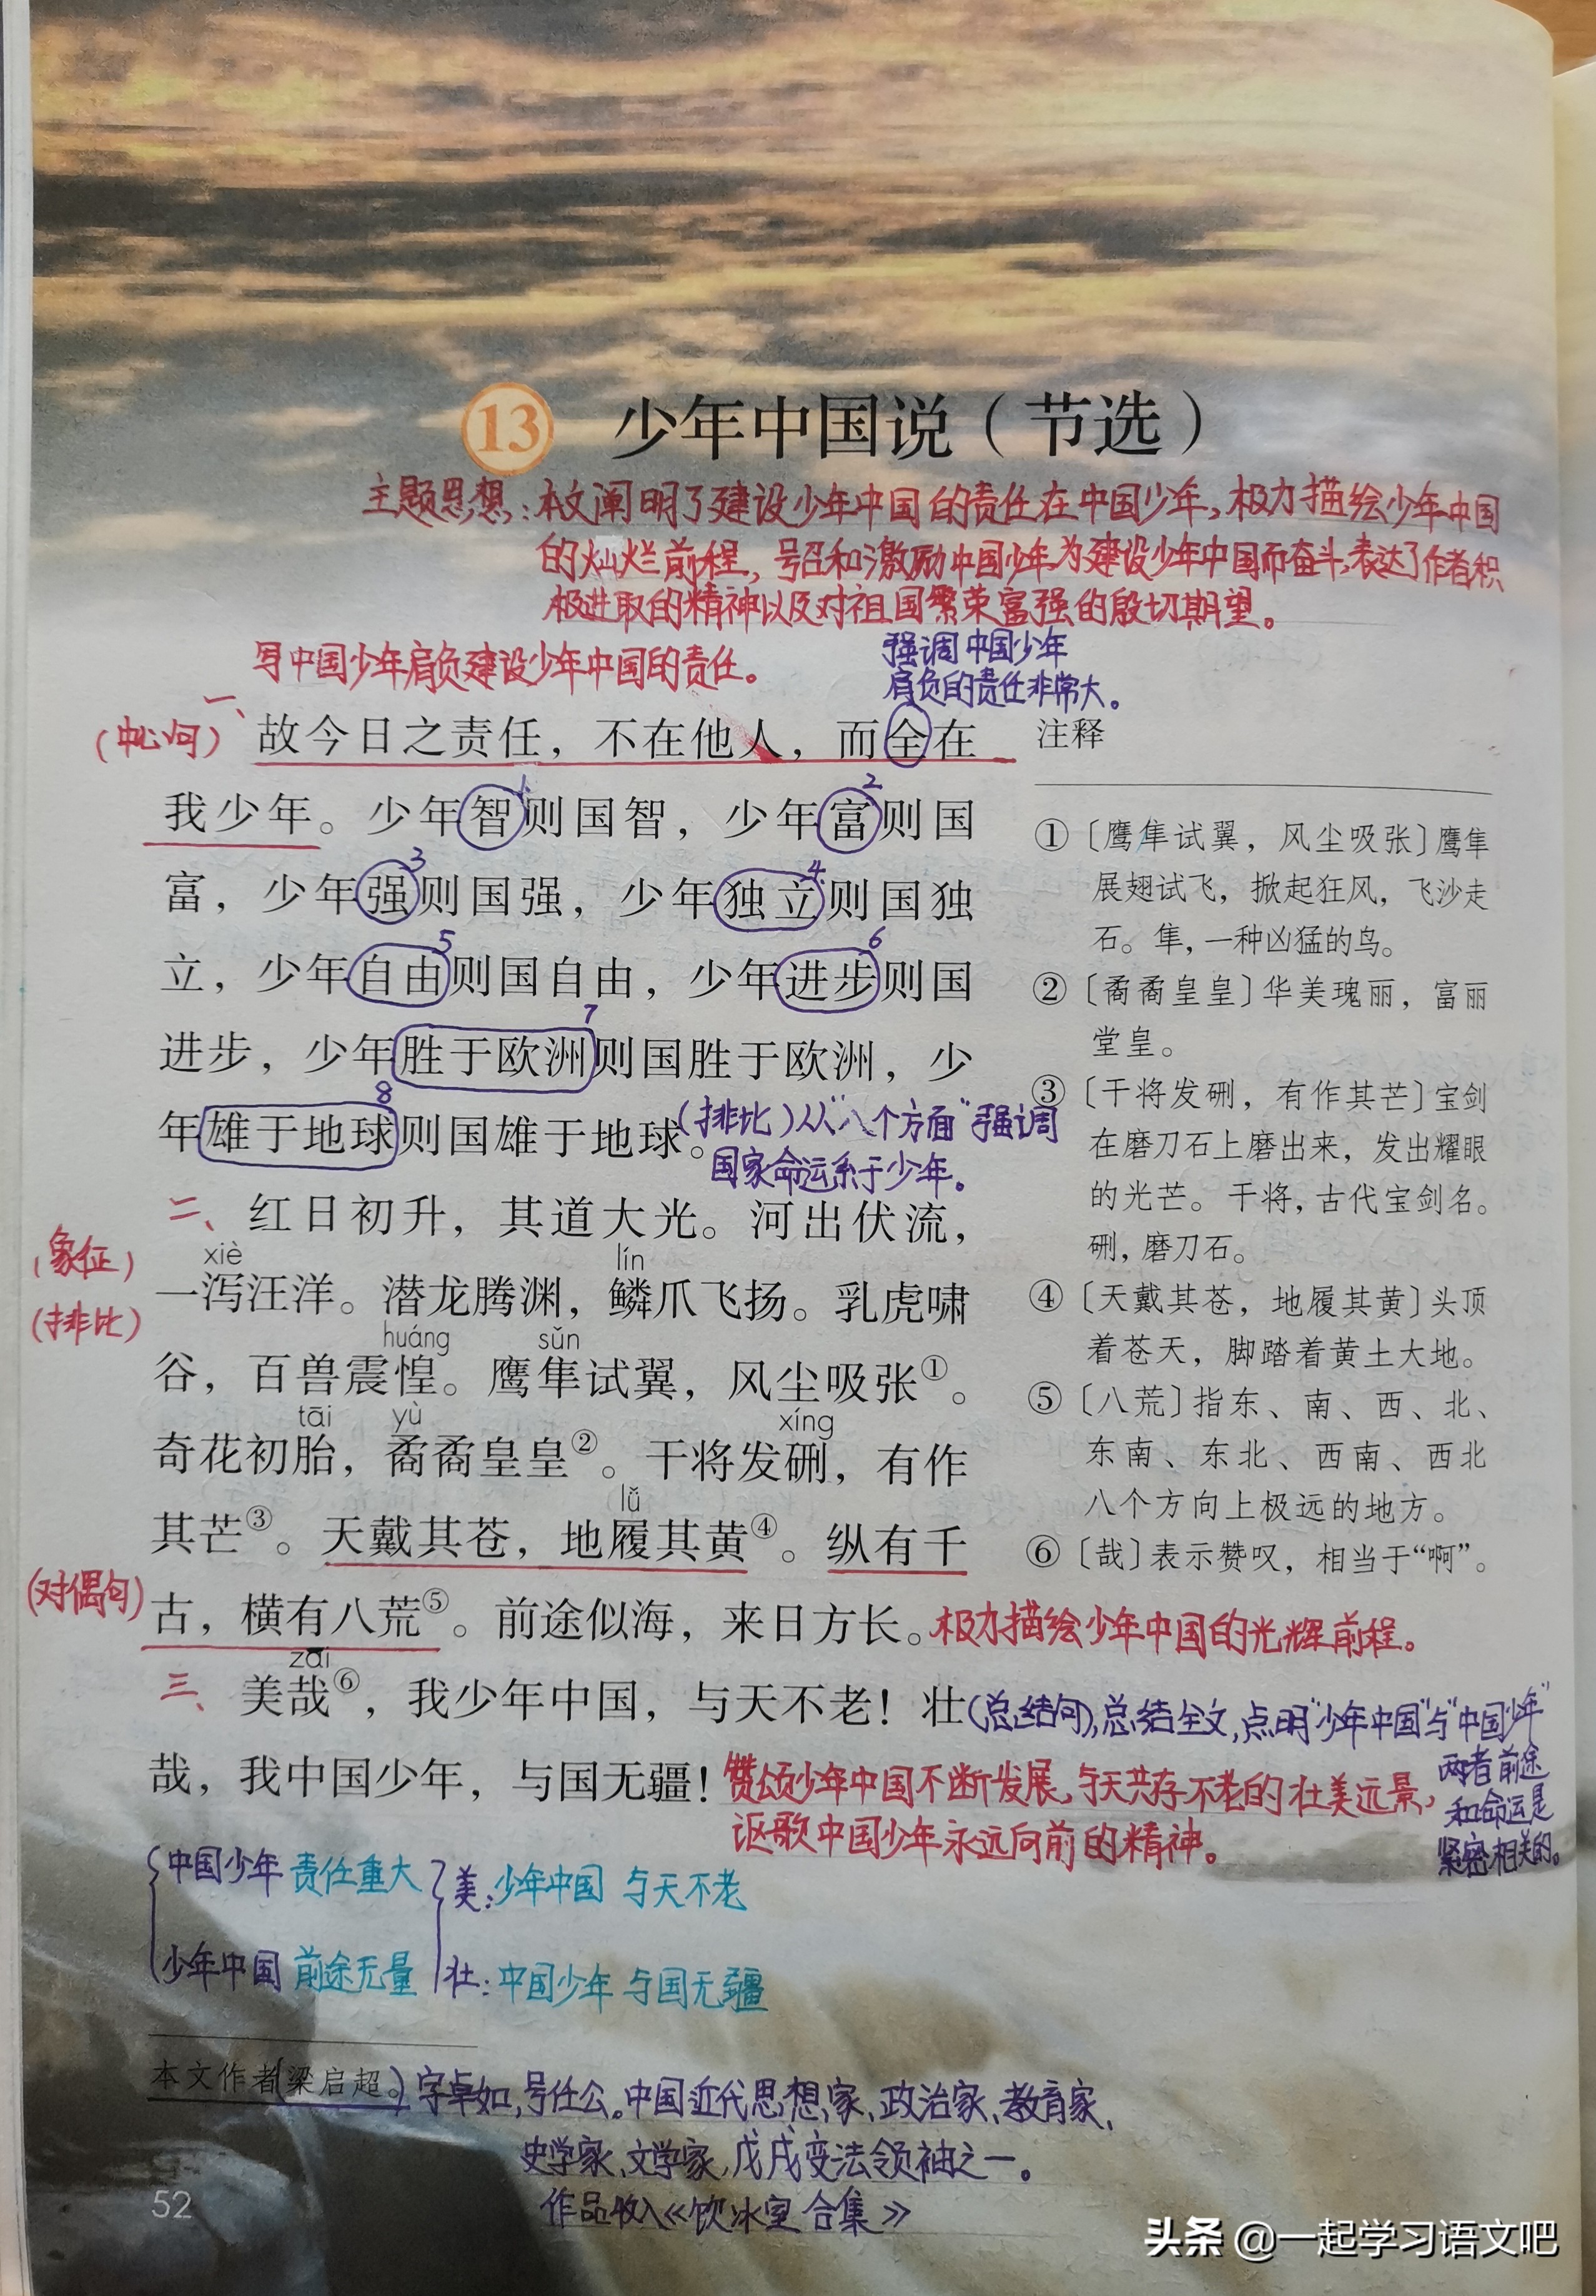 13 少年中国说（节选）
主题思想：本文阐明了建设少年中国的责任在中国少年，极力描绘少年中国
的灿烂前程，号召和激励中国少年为建设少年中国而奋斗，表达了作者积
极进取的精神以及对祖国繁荣富强的殷切期望。
写中国少年肩负建设少年中国的责任。
强调中国少年
肩负的责任非常大。
一、
（中心句）
故今日之责任，不在他人，而全在
1 2
我少年。少年智则国智，少年富则国
3 4
富，少年强则国强，少年独立则国独
5 6
立，少年自由则国自由，少年进步则国
7
进步，少年胜于欧洲则国胜于欧洲，少
8
年雄于地球则国雄于地球。
（排比）从“八个方面”强调
国家命运系于少年。
二、红日初升，其道大光。河出伏流，
（象征）
（排比）
xiè lín
一泻汪洋。潜龙腾渊，鳞爪飞扬。乳虎啸
huáng sǔn
谷，百兽震惶。鹰隼试翼，风尘吸张①。
tāi yù xíng
奇花初胎，矞矞皇皇②。干将发硎，有作
lǚ
其芒③。天戴其苍，地履其黄④。纵有千
（对偶句）
古，横有八荒⑤。前途似海，来日方长。
极力描绘少年中国的光辉前程。
zāi
三、美哉⑥，我少年中国，与天不老！壮
哉，我中国少年，与国无疆！
（总结句），总结全文，点明“少年中国”与“中国少年”
两者前途
和命运是
紧密相关的。
赞颂少年中国不断发展，与天共存不老的壮美远景，
讴歌中国少年永远向前的精神。
注释
①〔鹰隼试翼，风尘吸张〕鹰隼
展翅试飞，掀起狂风，飞沙走
石。隼，一种凶猛的鸟。
②〔矞矞皇皇〕华美瑰丽，富丽
堂皇。
③〔干将发硎，有作其芒〕宝剑
在磨刀石上磨出来，发出耀眼
的光芒。干将，古代宝剑名。
硎，磨刀石。
④〔天戴其苍，地履其黄〕头顶
着苍天，脚踏着黄土大地。
⑤〔八荒〕指东、南、西、北、
东南、东北、西南、西北
八个方向上极远的地方。
⑥〔哉〕表示赞叹，相当于“啊”。
中国少年 责任重大
少年中国 前途无量
美：少年中国 与天不老
壮：中国少年 与国无疆
本文作者（梁启超。）字卓如，号任公。中国近代思想家、政治家、教育家、
史学家、文学家，戊戌变法领袖之一。
作品收入《饮冰室合集》
52
头条 @一起学习语文吧